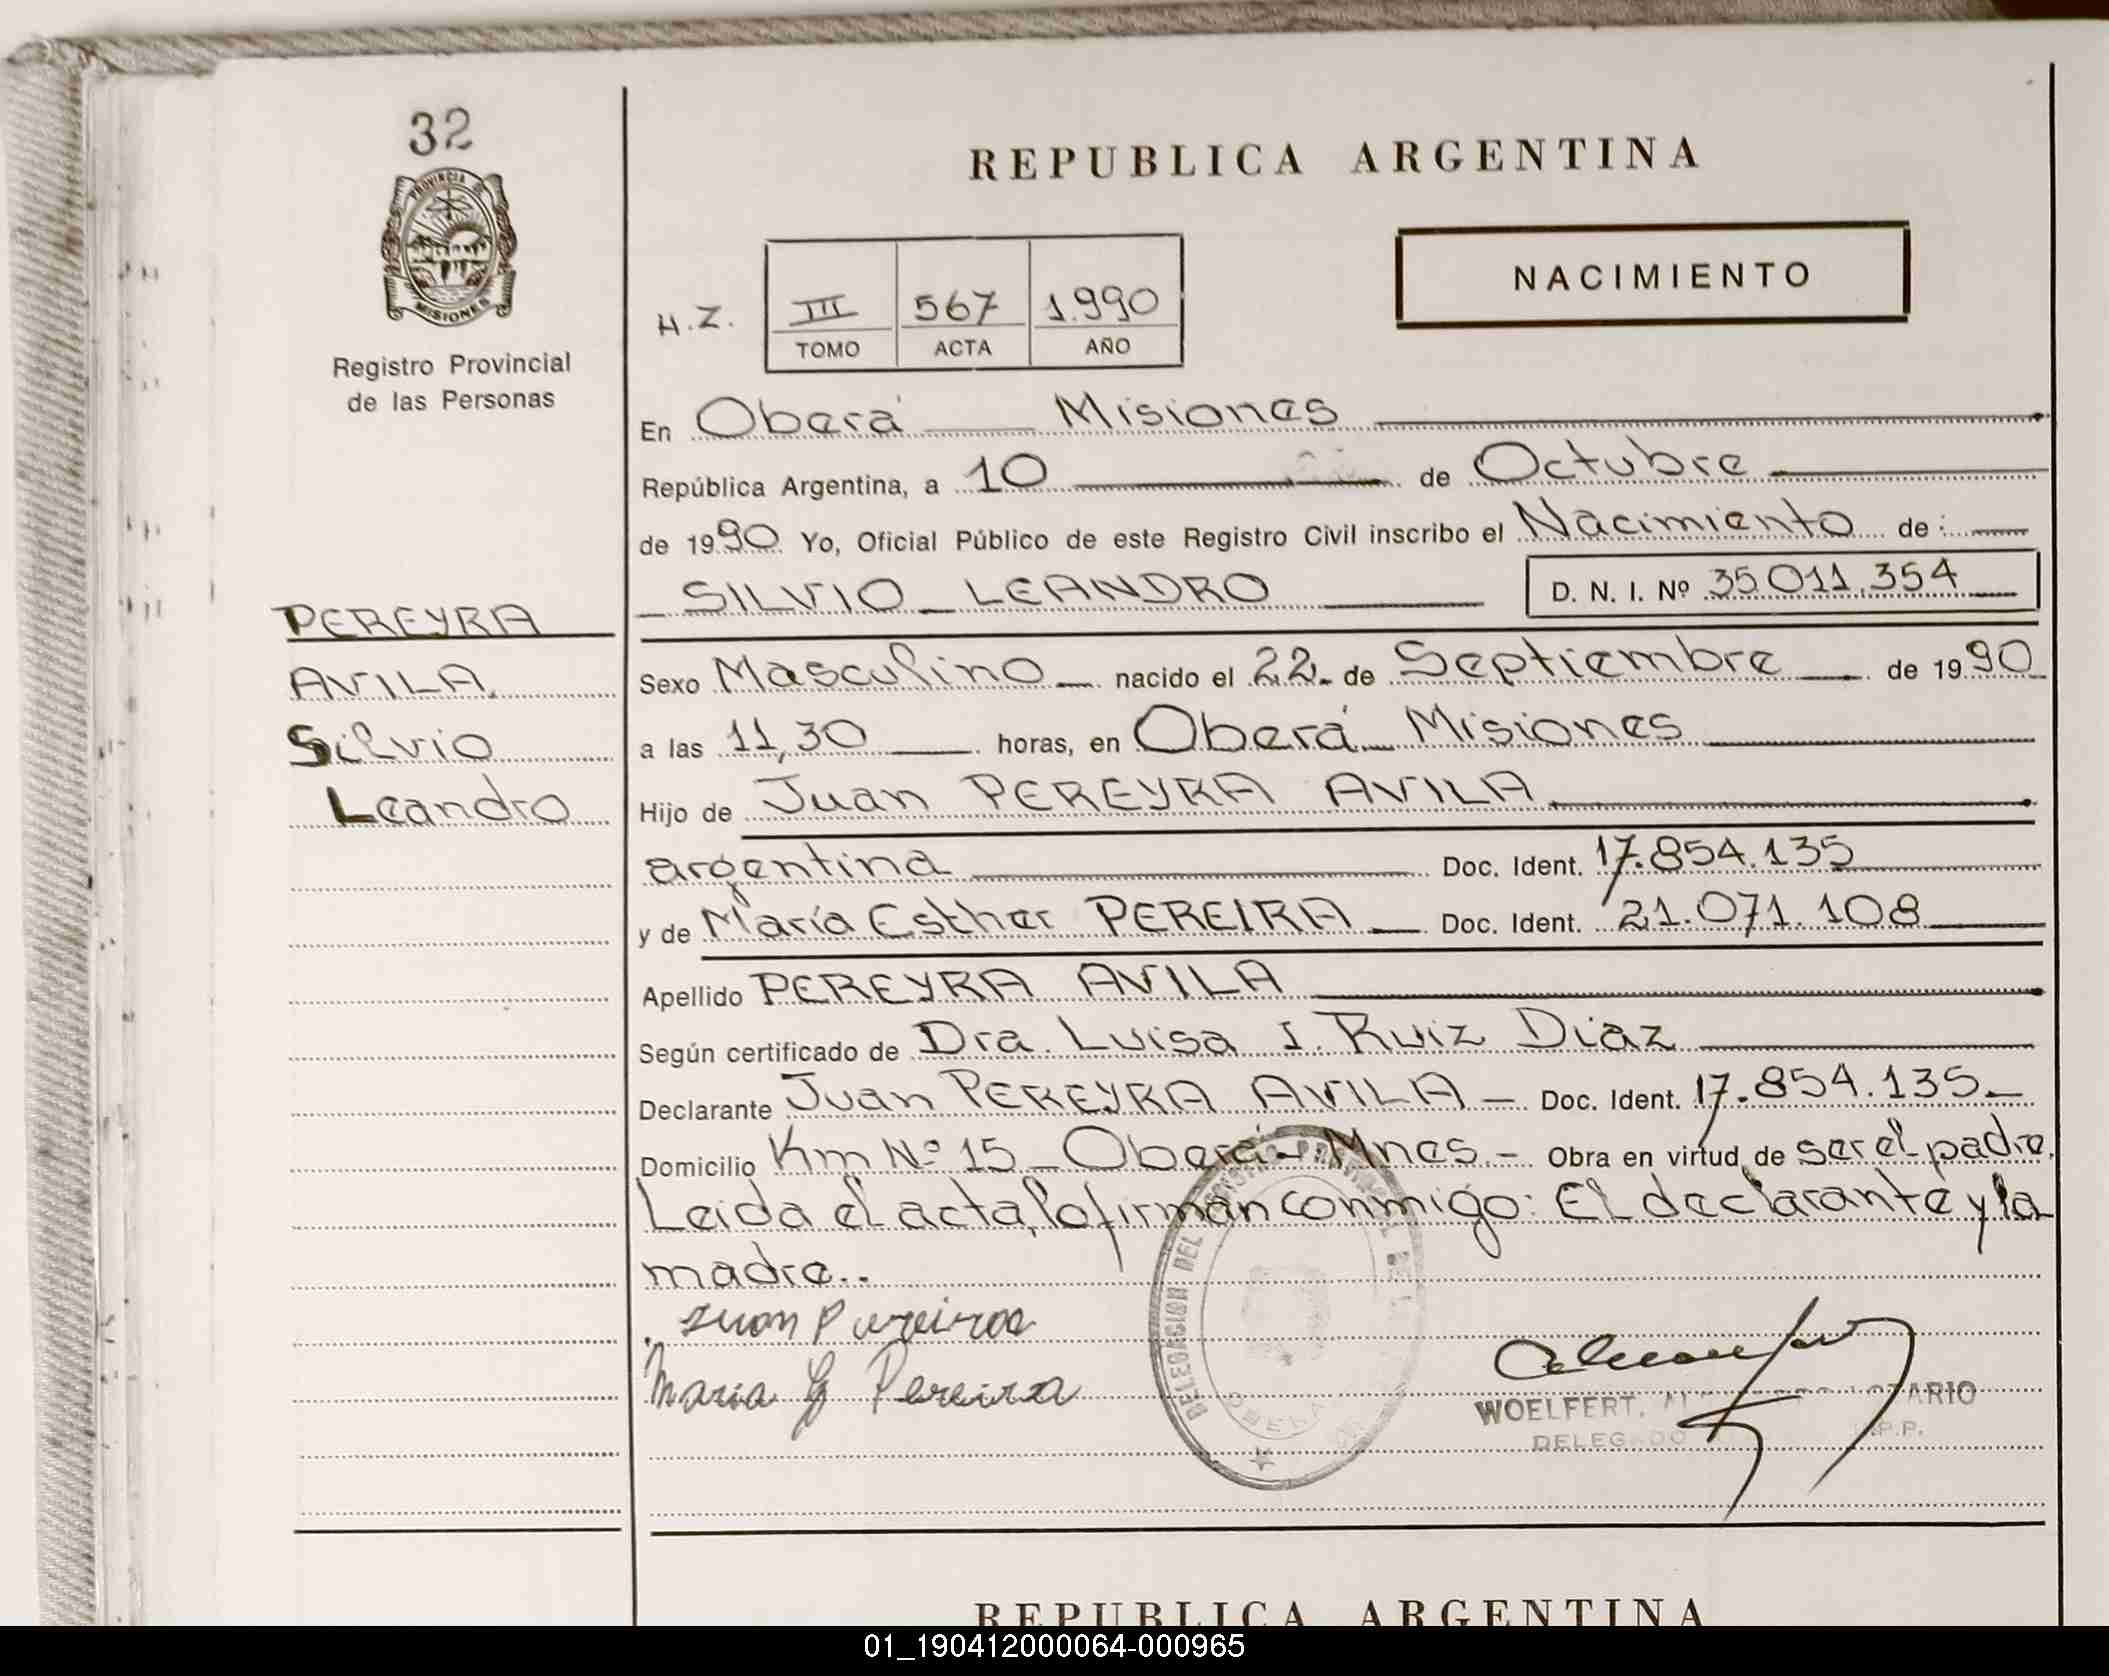 32
PROVINCIA
MISIONES
Registro Provincial
de las Personas
PEREYRA
AVILA
Silvio
Leandro
REPUBLICA ARGENTINA
NACIMIENTO
H.Z.
III 567 1.990
TOMO ACTA AÑO
En Oberá Misiones
República Argentina, a 10 de Octubre
de 1990 Yo, Oficial Público de este Registro Civil inscribo el Nacimiento de:
SILVIO LEANDRO D. N. I. Nº 35.011.354
Sexo Masculino nacido el 22 de Septiembre de 1990
a las 11,30 horas, en Oberá Misiones
Hijo de Juan PEREYRA AVILA
argentina Doc. Ident. 17.854.135
y de María Esther PEREIRA Doc. Ident. 21.071.108
Apellido PEREYRA AVILA
Según certificado de Dra. Luisa I. Ruiz Diaz
Declarante Juan PEREYRA AVILA - Doc. Ident. 17.854.135
Domicilio Km Nº 15 - Oberá - Mnes. - Obra en virtud de ser el padre.
Leida el acta, la firman conmigo: El declarante y la
madre..
Juan Pereira
Maria E Pereira
DELEGACION DEL REGISTRO PROVINCIAL DE LAS
OBERA
WOELFERT,
DELEGADO R.P.P.
REPUBLICA ARGENTINA
01_190412000064-000965